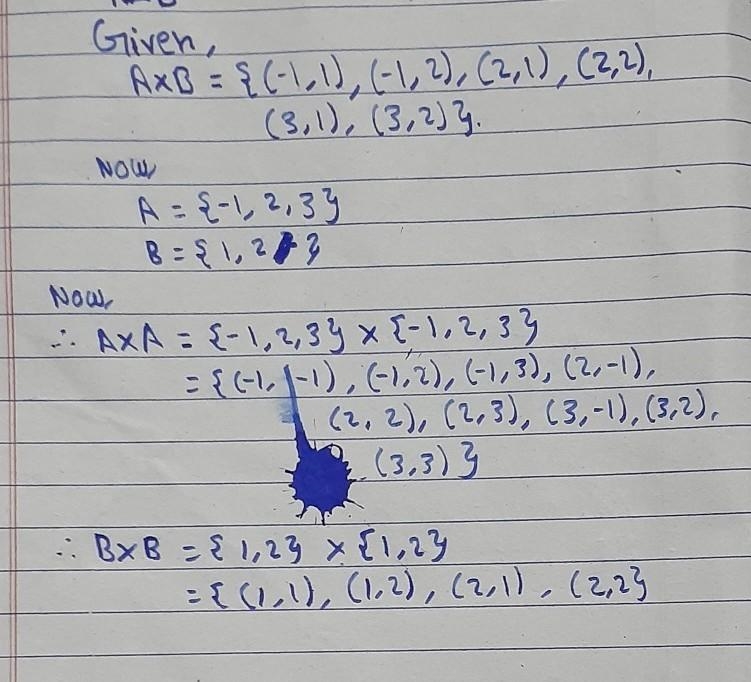 Given,
A×B = {(-1,1), (-1,2), (2,1), (2,2),
(3,1), (3,2)}.
Now
A = {-1, 2, 3}
B = {1, 2 }
Now
∴ A×A = {-1, 2, 3} × {-1, 2, 3}
= {(-1, -1), (-1,2), (-1,3), (2,-1),
(2, 2), (2,3), (3,-1), (3,2),
(3,3)}
∴ B×B = {1,2} × {1,2}
= {(1,1), (1,2), (2,1), (2,2}